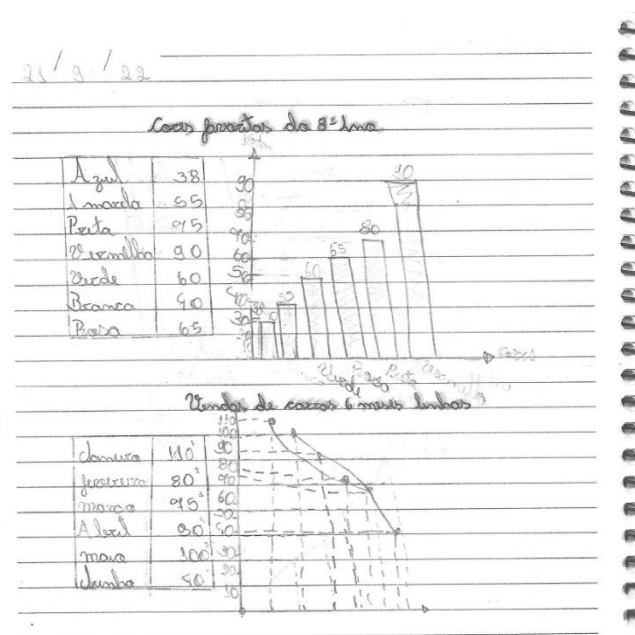 21/9/22
Cores favoritas da 8º Ana
Azul 38
Amarela 55
Preta 75
Vermelho 90
Verde 60
Branca 40
Rosa 65
90
80
60
65
55
38
90
70
60
50
40
30
cores
Verde Rosa Preta Vermelha
Vendas de carros 6 meses linhas
Janeiro 110
fevereiro 80
março 75
Abril 90
maio 100
Junho 40
110
100
90
80
70
60
50
40
30
20
10